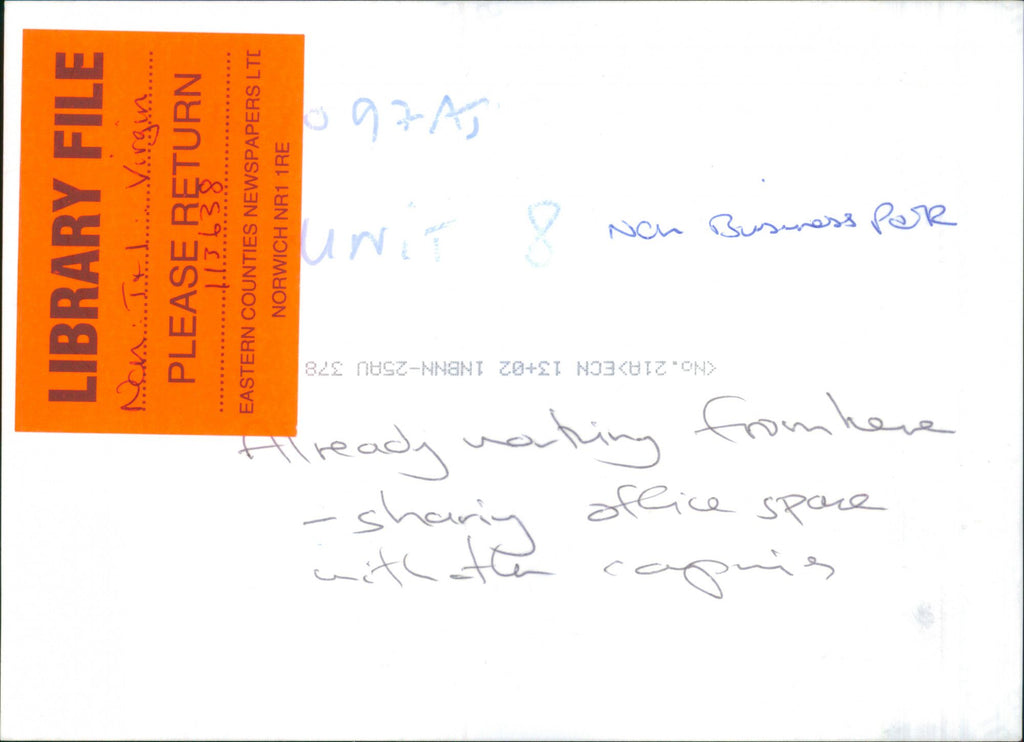 LIBRARY FILE
Virgin
PLEASE RETURN
113638
EASTERN COUNTIES NEWSPAPERS LTD
NORWICH NR1 1RE
097AJ
UNIT 8
Business Park
<No.21A>ECN 13+02 1NBNN-25AU 378
Already working from here
- sharing office space
with other companies